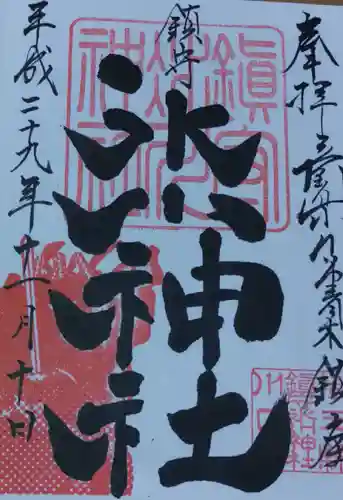 奉拝
青木
鎮座
鎮守
氷川神社
平成二十九年十一月十日
鎮守氷川神社